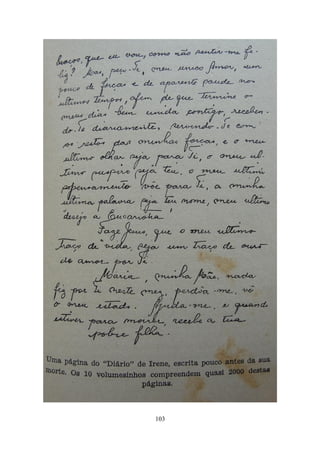 braços, que eu vou, como não sentir-me fe-
liz? Mas, peço-Te, meu único Amor, um
pouco de forças e de aparente saude nos
ultimos tempos, afim de que termine os
meus dias bem unida contigo, receben-
do-Te diariamente, servindo-Te com
os restos das minhas forças, e o meu
ultimo olhar seja para Ti, o meu ul-
timo suspiro seja teu, o meu ultimo
pensamento vôe para Ti, a minha
ultima palavra seja teu nome, meu ultimo
desejo a Eucaristia!
Faze Jesus, que o meu ultimo
traço de vida seja um traço de ouro
do amor por Ti.
Maria, minha Mãe, nada
fiz por Ti neste mez, perdôa-me, vê
o meu estado. Ajuda-me e quando
estiver para morrer, recebe a tua
pobre filha.
Uma página do "Diário" de Irene, escrita pouco antes da sua
morte. Os 10 volumesinhos compreendem quasi 2000 destas
páginas.
103